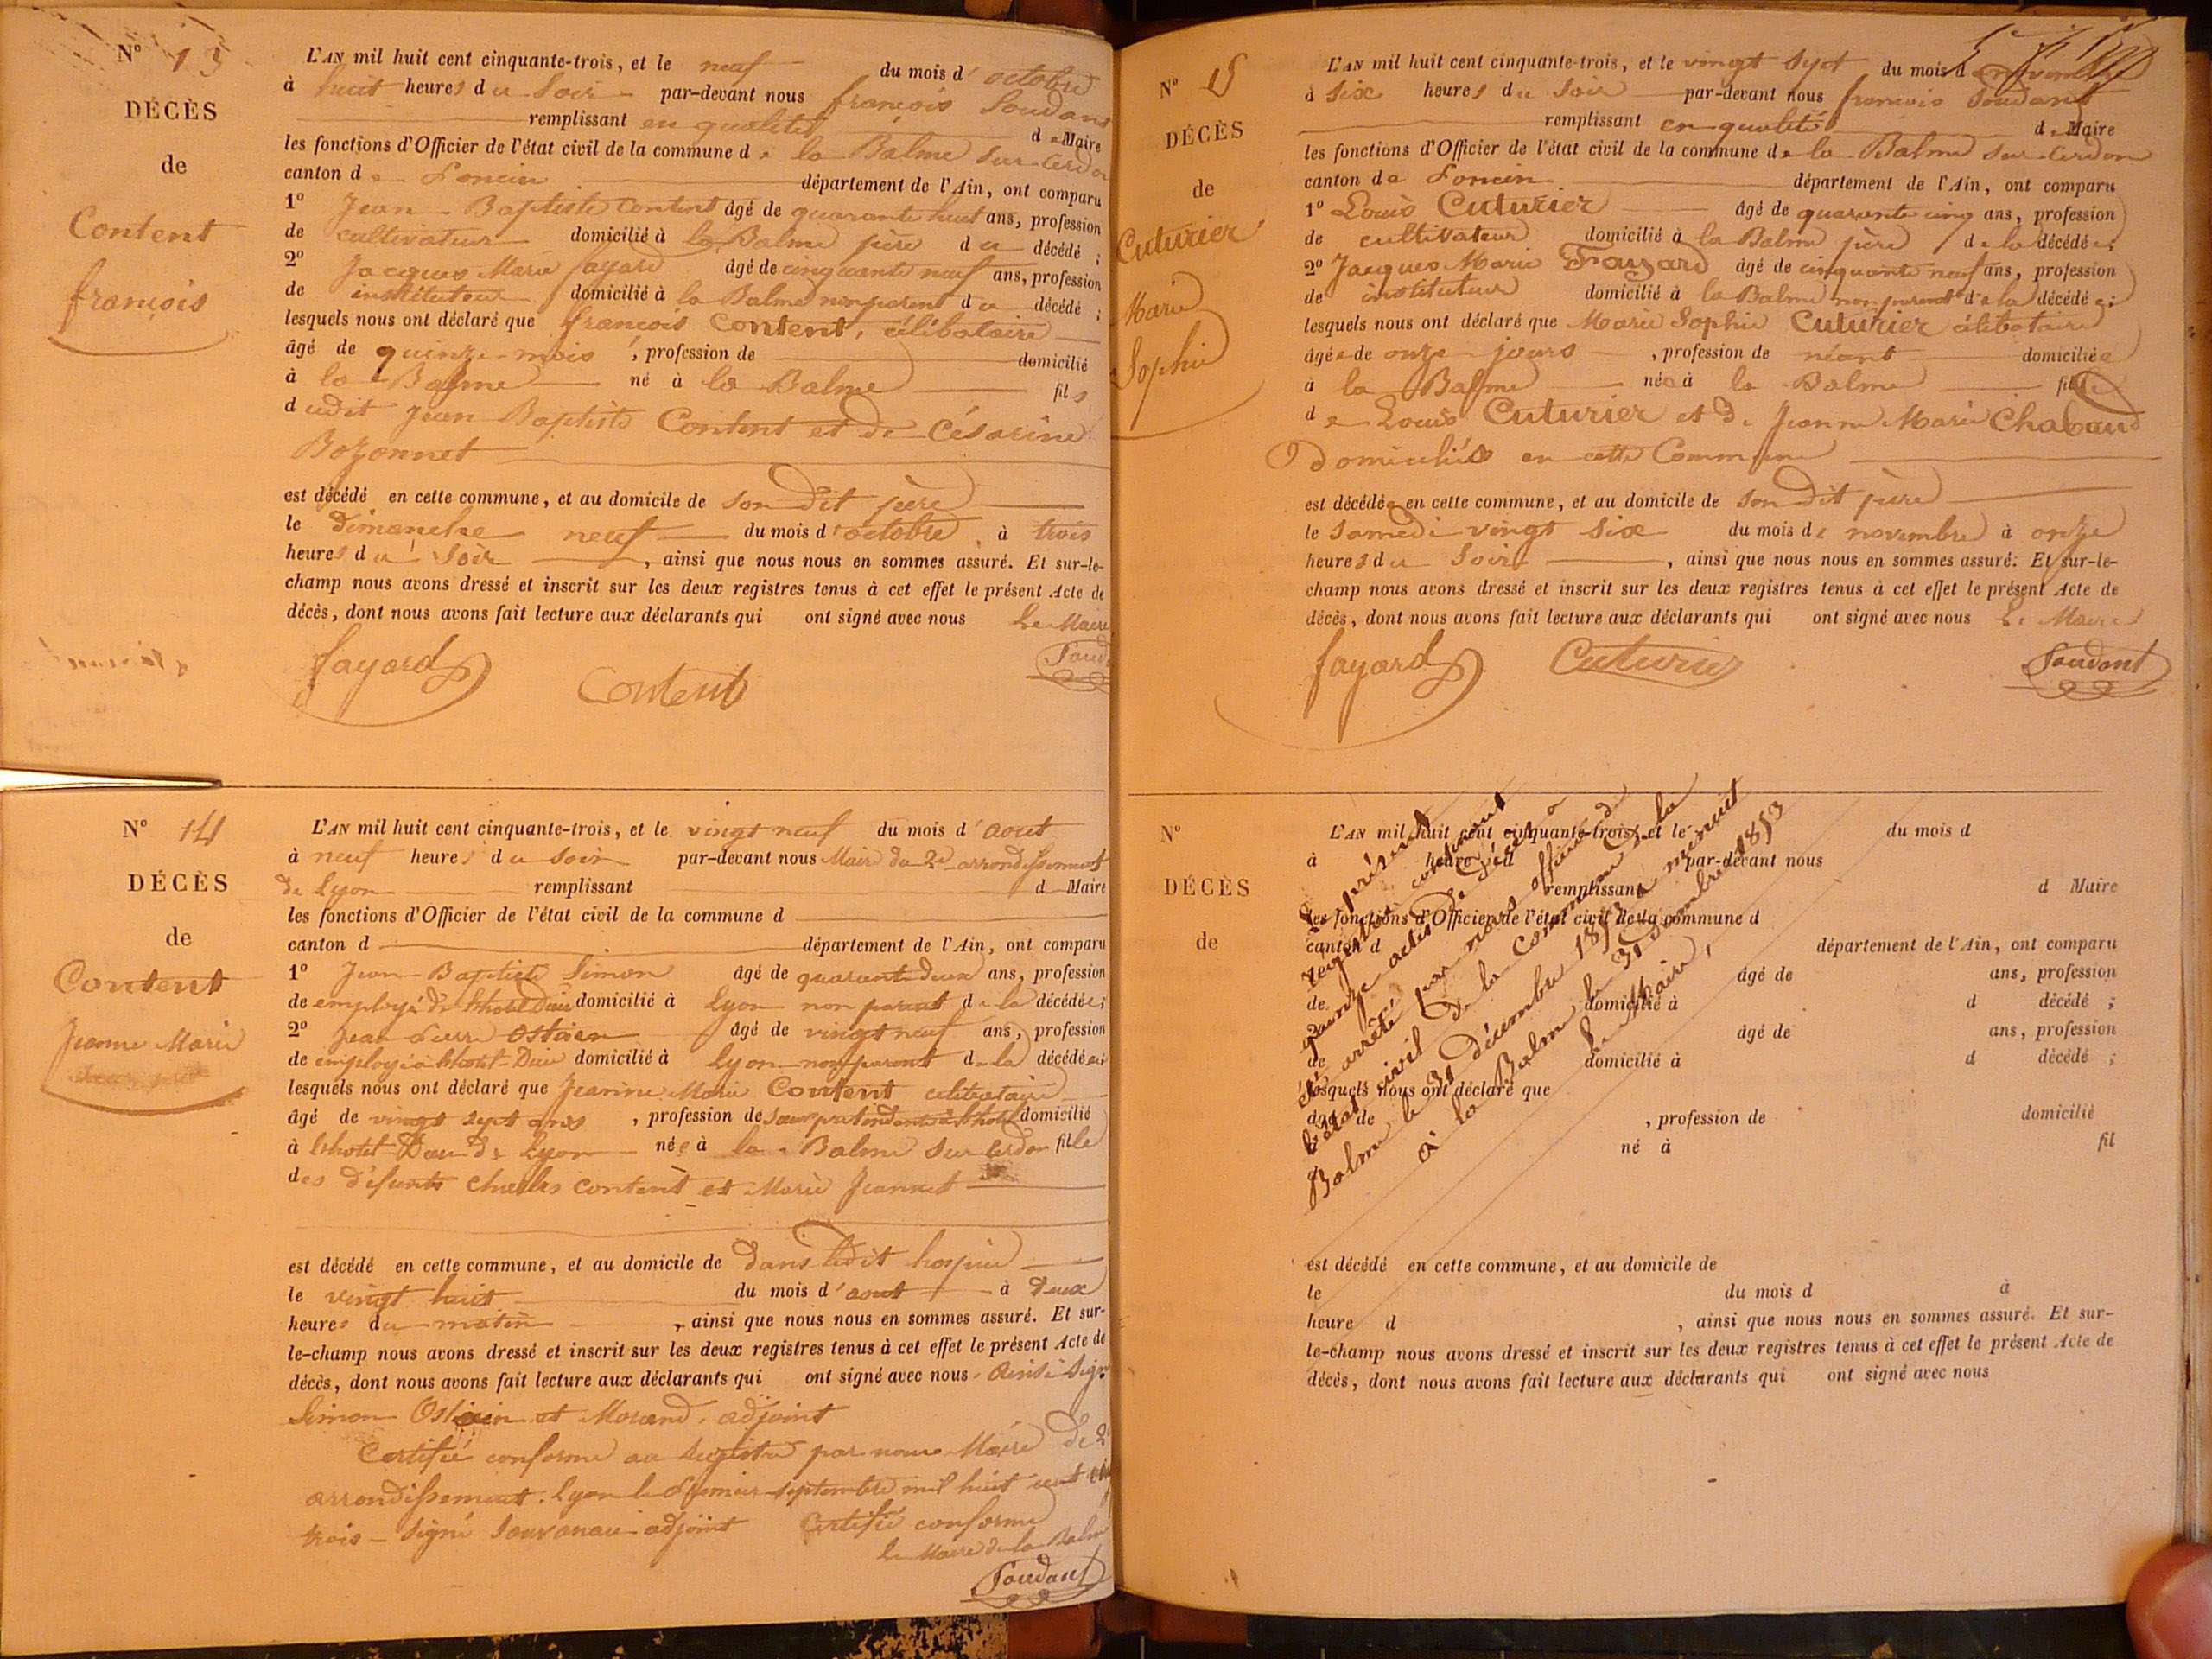 N° 13
DÉCÈS
de
Content
françois
L'AN mil huit cent cinquante-trois, et le neuf du mois d'octobre
à huit heures du Soir par-devant nous françois Soudan
remplissant en qualité de Maire
les fonctions d'Officier de l'état civil de la commune de la Balme sur Cerdon
canton de Poncin département de l'Ain, ont comparu
1° Jean-Baptiste Content âgé de quarante huit ans, profession
de cultivateur domicilié à la Balme père du décédé ;
2° Jacques Marie fayard âgé de cinquante neuf ans, profession
de instituteur domicilié à la Balme non parent du décédé ;
lesquels nous ont déclaré que françois Content, célibataire
âgé de quinze mois, profession de domicilié
à la Balme né à la Balme fils
dudit Jean Baptiste Content et de Césarine
Bozonnet
est décédé en cette commune, et au domicile de son dit père
le dimanche neuf du mois d'octobre, à trois
heures du Soir, ainsi que nous nous en sommes assuré. Et sur-le-
champ nous avons dressé et inscrit sur les deux registres tenus à cet effet le présent Acte de
décès, dont nous avons fait lecture aux déclarants qui ont signé avec nous Le Maire
fayard Content Soud
N° 14
DÉCÈS
de
Content
Jeanne Marie
L'AN mil huit cent cinquante-trois, et le vingt neuf du mois d'aout
à neuf heures du soir par-devant nous Maire du 2e arrondissement
de Lyon remplissant d Maire
les fonctions d'Officier de l'état civil de la commune d
canton d département de l'Ain, ont comparu
1° Jean-Baptiste Simon âgé de quarante deux ans, profession
de employé de lhotel Dieu domicilié à Lyon non parent de la décédée ;
2° Jean Pierre âgé de vingt neuf ans, profession
de employé à lhotel-Dieu domicilié à Lyon non parent de la décédée ;
lesquels nous ont déclaré que Jeanne Marie Content célibataire
âgé de vingt sept ans, profession de Sœur prétendante à lhotel domicilié
à lhotel Dieu de Lyon née à la Balme sur Cerdon fille
des défunts Charles Content et Marie Jeannet
est décédé en cette commune, et au domicile de dans ledit hospice
le vingt huit du mois d'aout à deux
heures du matin, ainsi que nous nous en sommes assuré. Et sur-
le-champ nous avons dressé et inscrit sur les deux registres tenus à cet effet le présent Acte de
décès, dont nous avons fait lecture aux déclarants qui ont signé avec nous. Ainsi Signé
Simon et Morand, adjoint
Certifié conforme au registre par nous Maire de 2e
arrondissement. Lyon le premier septembre mil huit cent
trois - signé adjoint Certifié conforme
Le Maire de la Balme
Soudan
N° 15
DÉCÈS
de
Cuturier
Marie
Sophie
L'AN mil huit cent cinquante-trois, et le vingt Sept du mois de novembre
à six heures du Soir par-devant nous francois Soudant
remplissant en qualité de Maire
les fonctions d'Officier de l'état civil de la commune de la Balme sur Cerdon
canton de Poncin département de l'Ain, ont comparu
1° Louis Cuturier âgé de quarante cinq ans, profession
de cultivateur domicilié à la Balme père de la décédée ;
2° Jacques Marie Fayard âgé de cinquante neuf ans, profession
de instituteur domicilié à la Balme non parent de la décédée ;
lesquels nous ont déclaré que Marie Sophie Cuturier célibataire
âgée de onze jours, profession de néant domiciliée
à la Balme née à la Balme fille
de Louis Cuturier et de Jeanne Marie Chabaud
domiciliés en cette Commune
est décédée en cette commune, et au domicile de son dit père
le Samedi vingt six du mois de novembre à onze
heures du Soir, ainsi que nous nous en sommes assuré. Et sur-le-
champ nous avons dressé et inscrit sur les deux registres tenus à cet effet le présent Acte de
décès, dont nous avons fait lecture aux déclarants qui ont signé avec nous Le Maire
fayard Cuturier Soudant
N°
DÉCÈS
de
L'AN mil huit cent cinquante-trois, et le du mois d
à heure d par-devant nous
remplissant d Maire
les fonctions d'Officier de l'état civil de la commune d
canton d département de l'Ain, ont comparu
âgé de ans, profession
de domicilié à d décédé ;
âgé de ans, profession
de domicilié à d décédé ;
lesquels nous ont déclaré que
âgé de , profession de domicilié
né à fil
Le présent
registre contenant
quinze actes de décès a
été arrêté par nous officier de
l'état civil de la Commune de la
Balme le 31 décembre 1853 a minuit
à la Balme le 31 décembre 1853
Le Maire,
est décédé en cette commune, et au domicile de
le du mois d à
heure d , ainsi que nous nous en sommes assuré. Et sur-
le-champ nous avons dressé et inscrit sur les deux registres tenus à cet effet le présent Acte de
décès, dont nous avons fait lecture aux déclarants qui ont signé avec nous